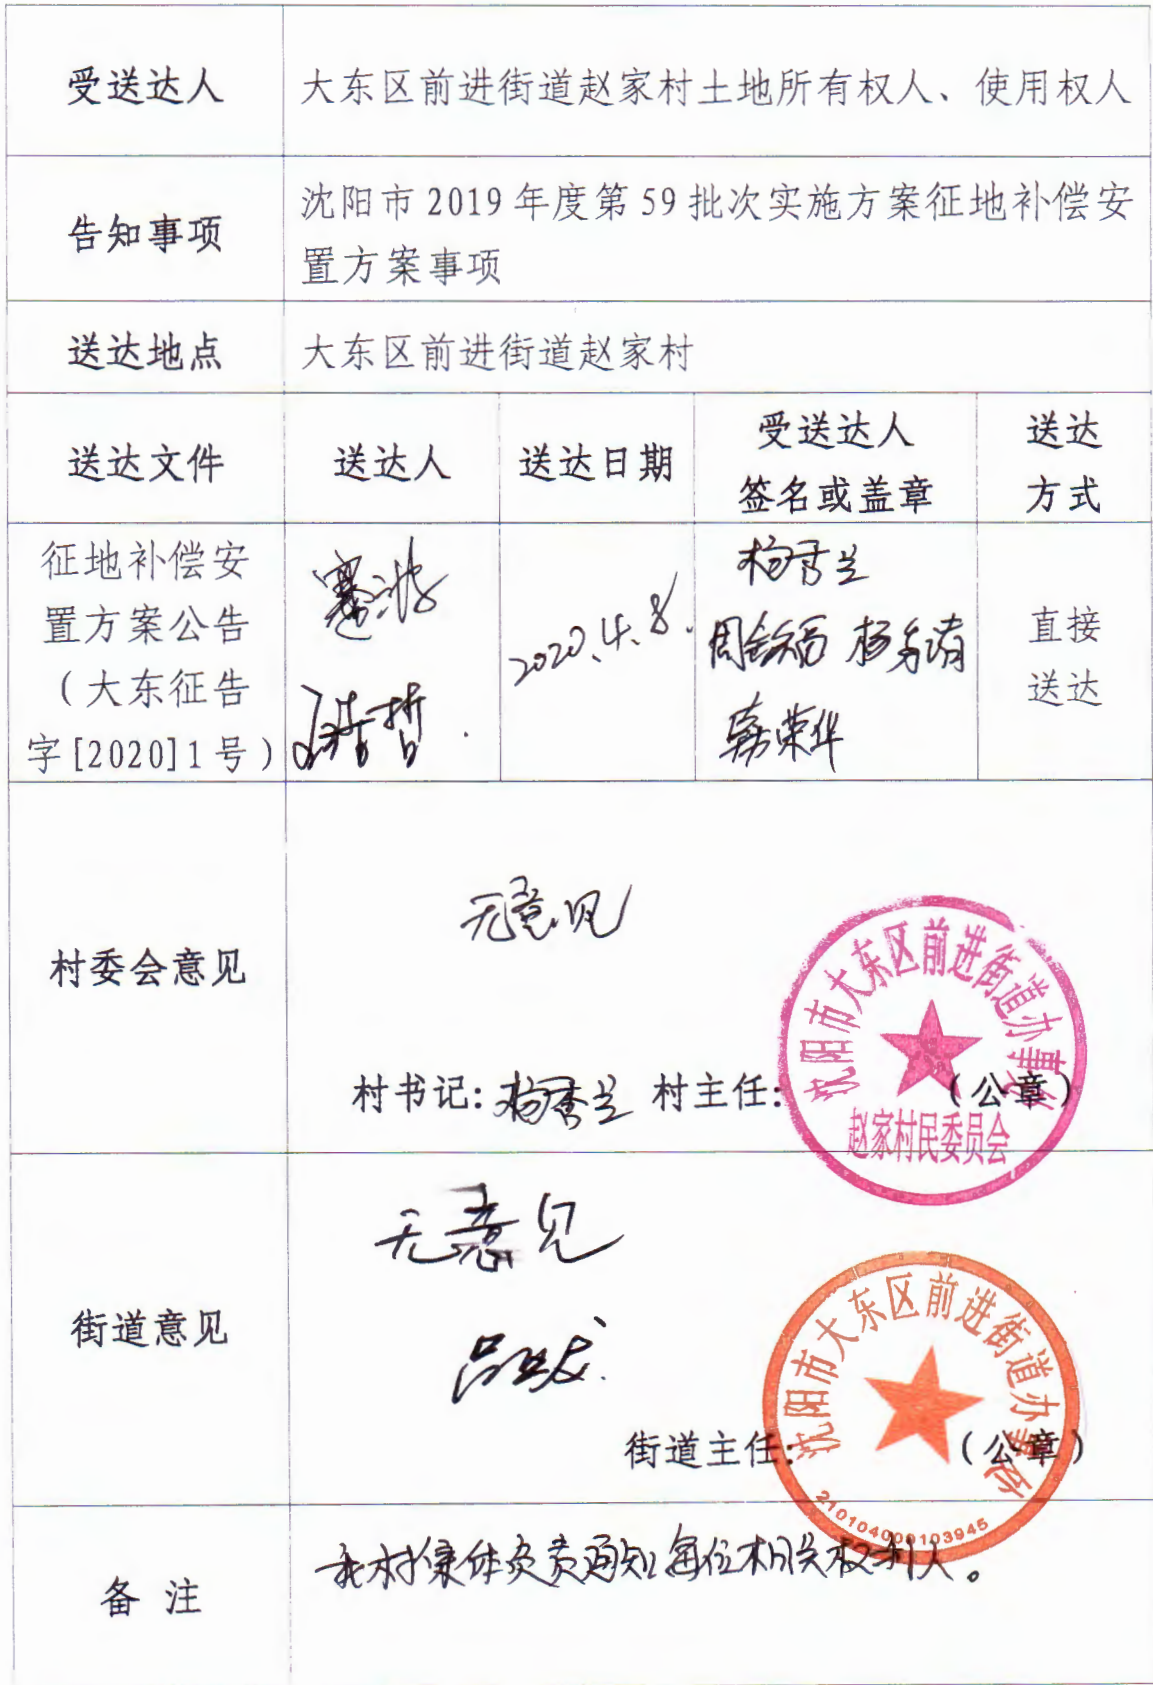 受送达人
大东区前进街道赵家村土地所有权人、使用权人
告知事项
沈阳市2019年度第59批次实施方案征地补偿安
置方案事项
送达地点
大东区前进街道赵家村
送达文件
送达人
送达日期
受送达人
签名或盖章
送达
方式
征地补偿安
置方案公告
(大东征告
字[2020]1号)
2020.4.8.
杨秀兰
荣华
直接
送达
村委会意见
无意见
村书记:杨秀兰 村主任: (公章)
沈阳市大东区前进街道办事处
赵家村民委员会
街道意见
无意见
街道主任: (公章)
沈阳市大东区前进街道办事处
210104000103945
备 注
我村集体负责通知每位相关权利人。